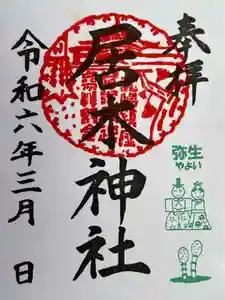 奉拝
居木神社
令和六年三月 日
弥生
やよい